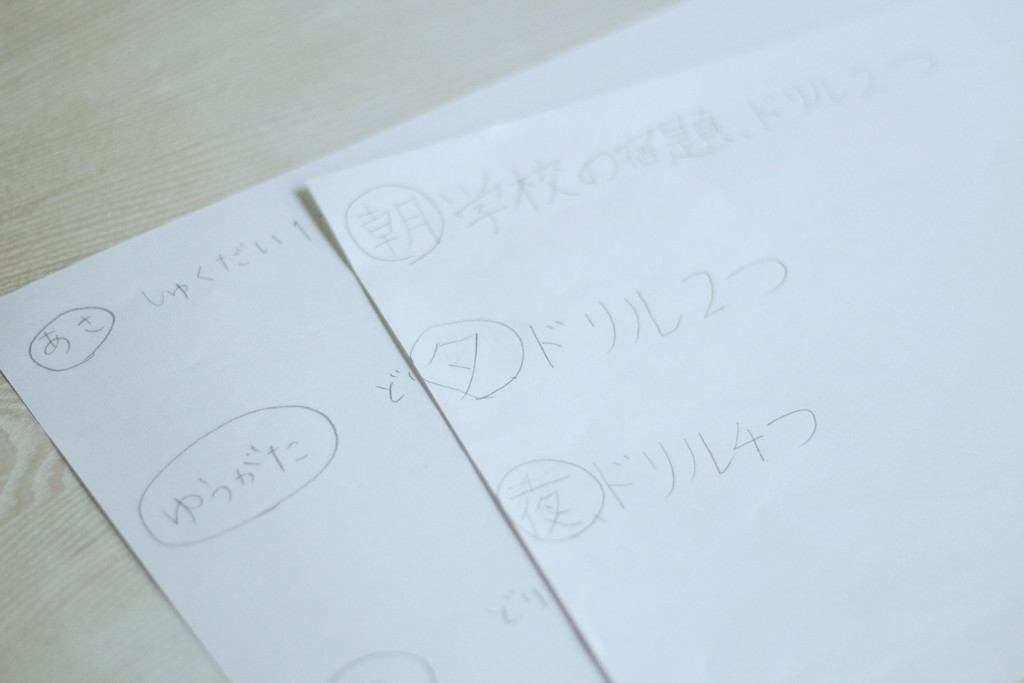 あさ しゅくだい1
ゆうがた
朝 学校の宿題、ドリル2つ
夕 ドリル2つ
夜 ドリル4つ